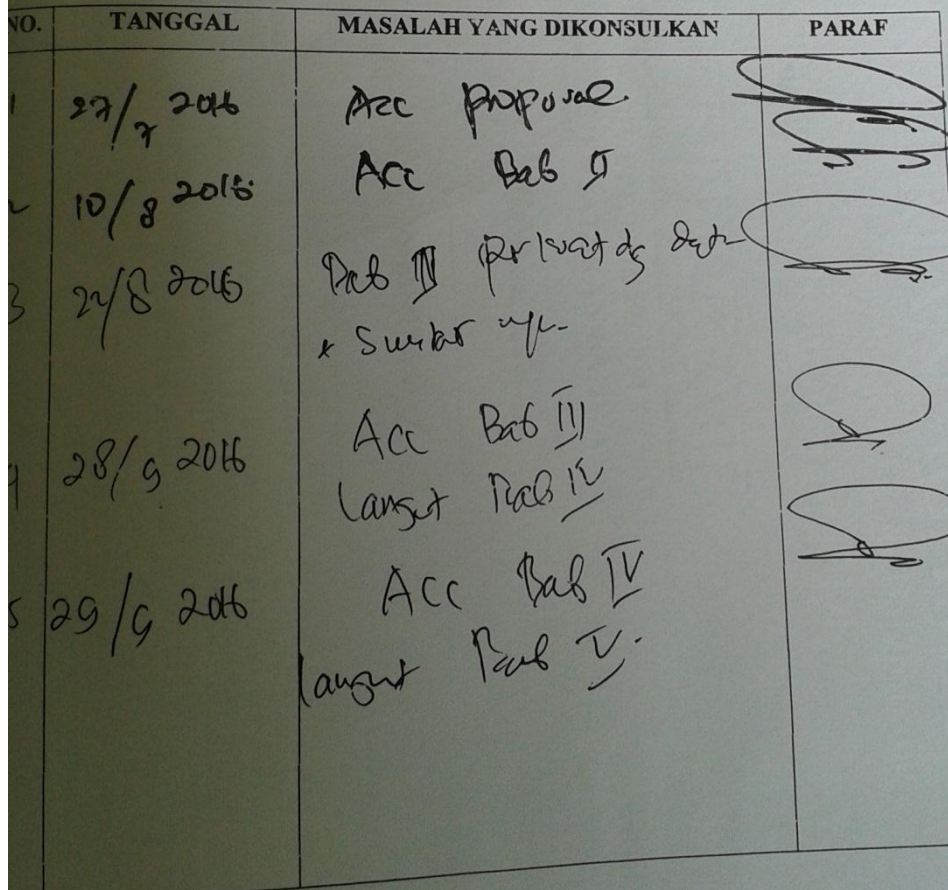 NO. TANGGAL MASALAH YANG DIKONSULKAN PARAF
1 27/7 2016 Acc proposal
2 10/8 2016 Acc Bab II
3 22/8 2016 Bab III perkuat dg data
* Sumber
4 28/9 2016 Acc Bab III
Langut Bab IV
5 29/9 2016 Acc Bab IV
langut Bab V.